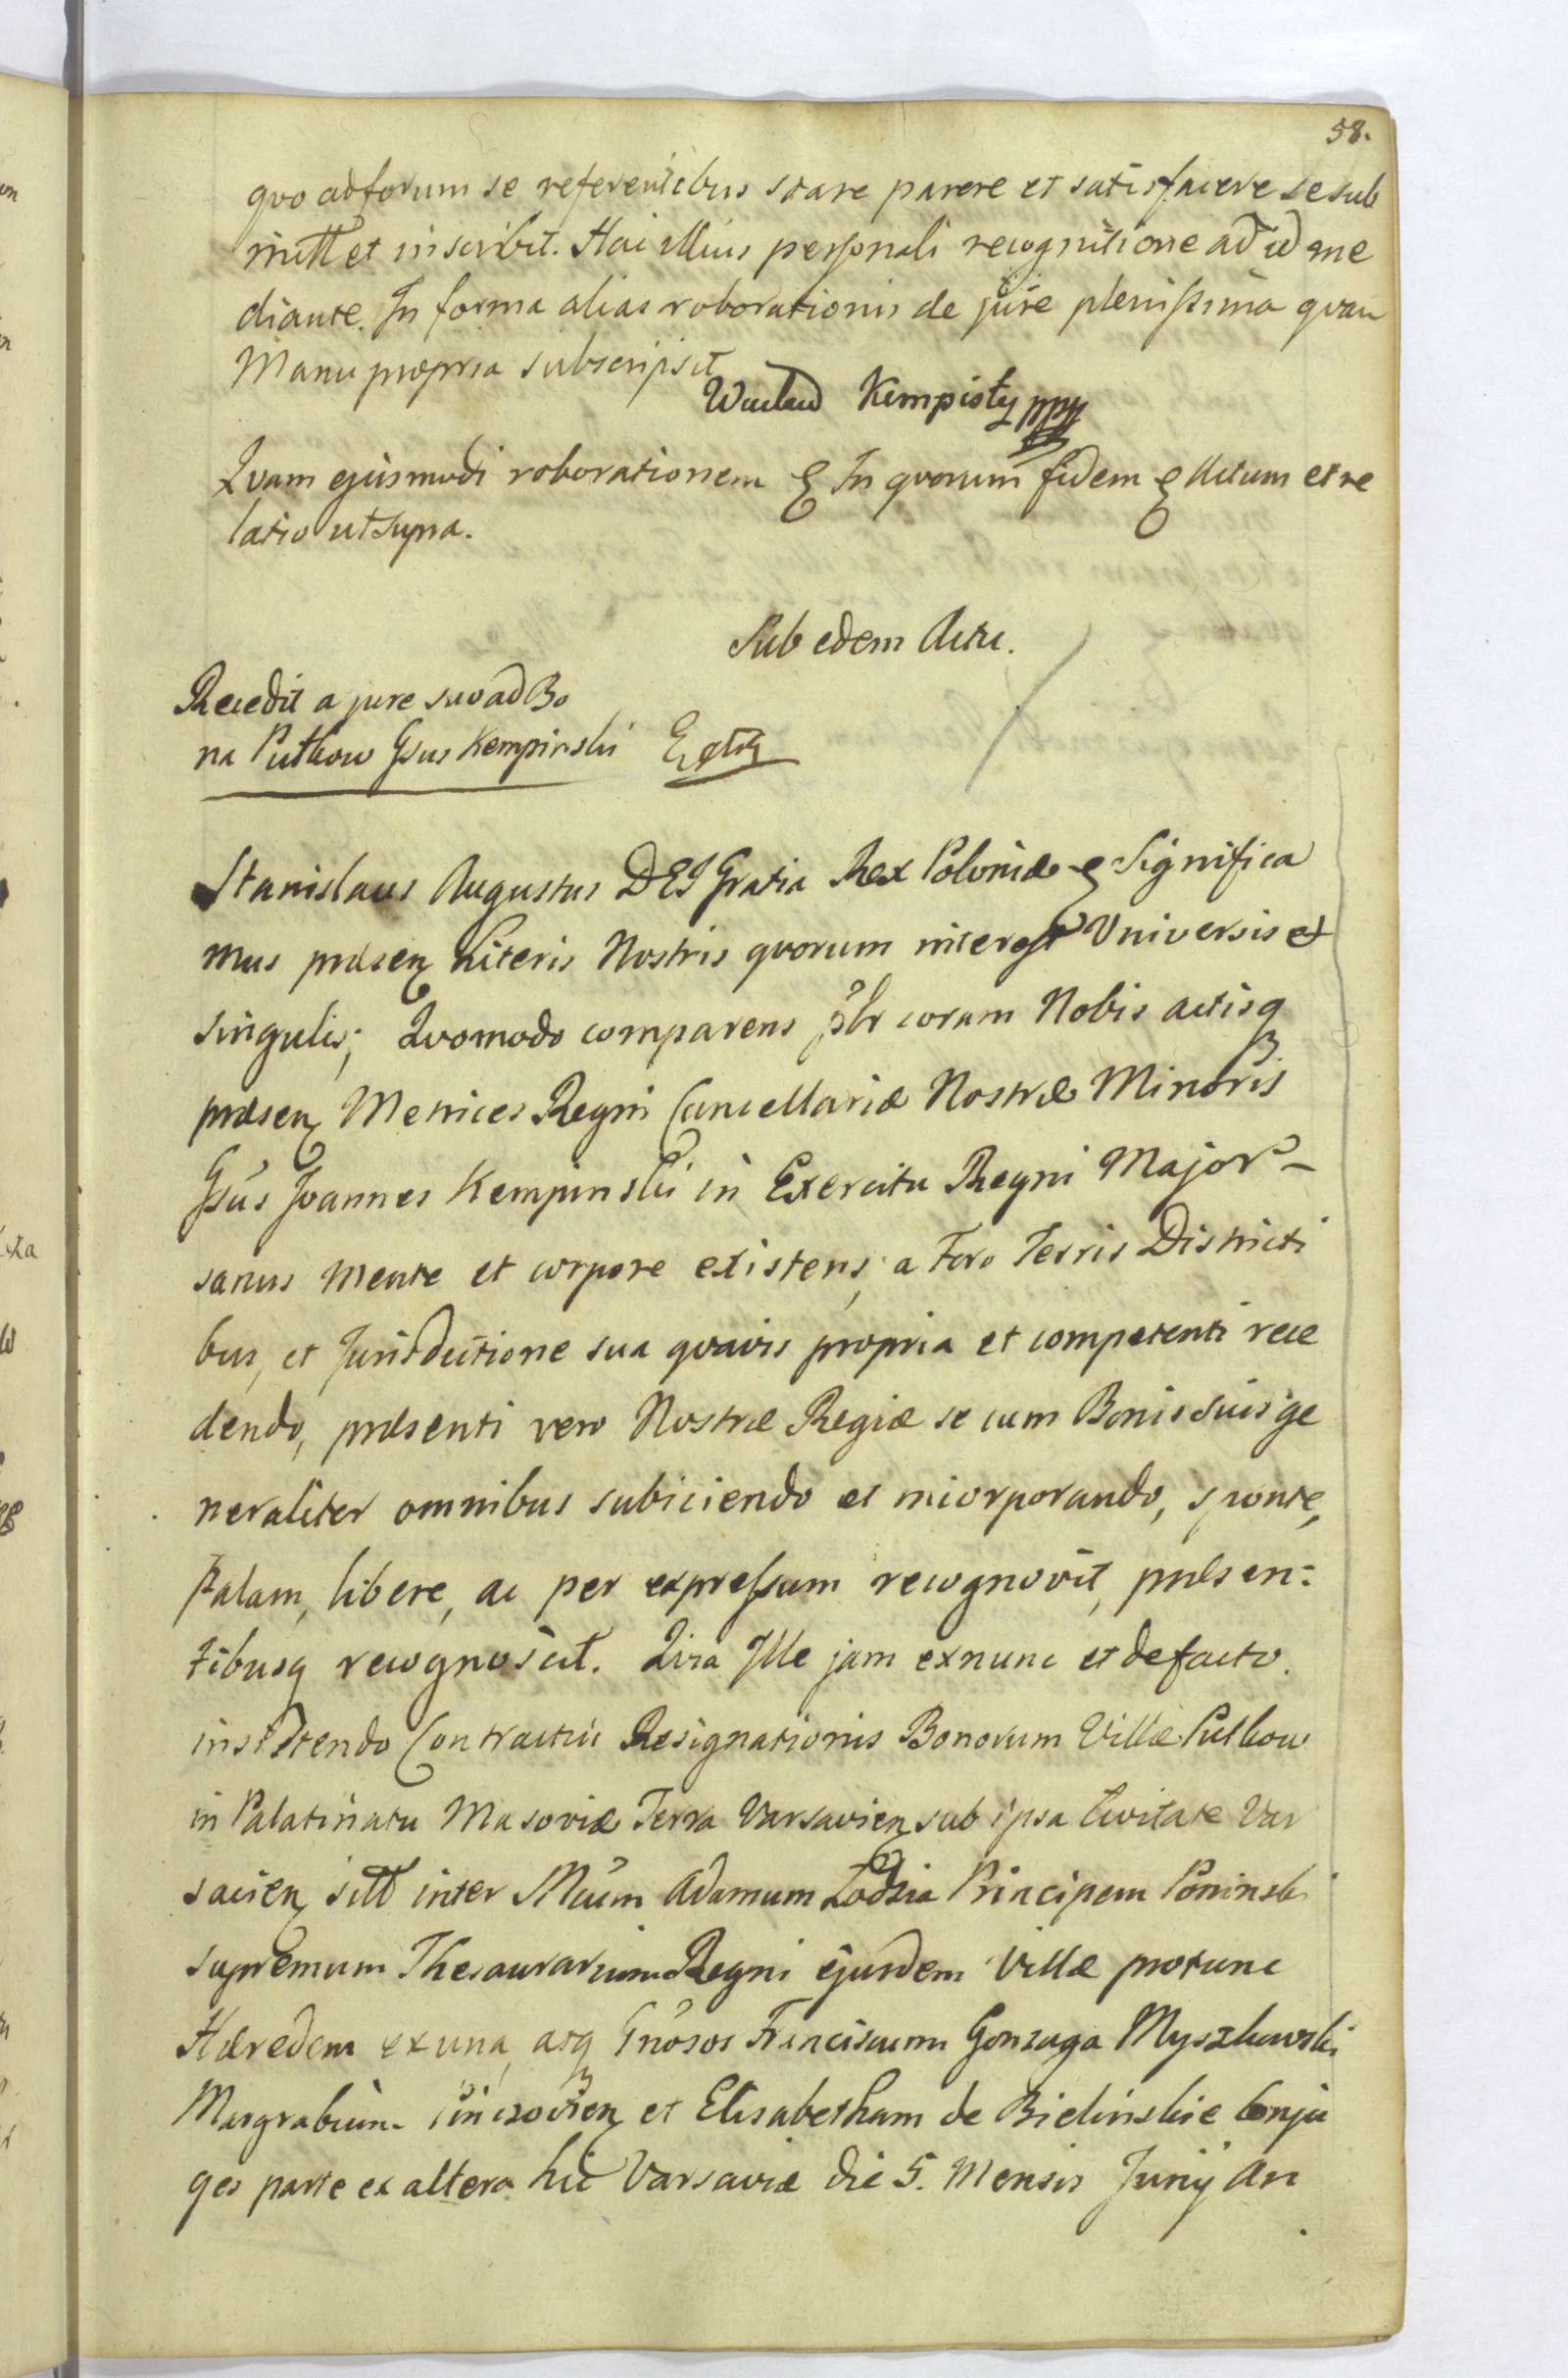 58.
quo ad forum se referentibus stare parere et satisfacere se sub
mitt et inscribit. Hac illius personali recognitione ad id me
diante. In forma alias roborationis de jure plenissima quam
Manu propria subscripsit
Wacław Kempisty mpp
Quam ejusmodi roborationem & In quorum fidem & Actum et re
latio ut supra.
Sub edem Actu.
Recedit a jure suo ad Bo
na Pulkow Gsus Kempinski
Stanislaus Augustus DEI Gratia Rex Poloniæ & Significa
mus præsen Literis Nostris quorum interest Universis et
singulis; Quomodo comparens plr coram Nobis actisq
præsen Metrices Regni Cancellariæ Nostræ Minoris
Gsus Joannes Kempinski in Exercitu Regni Major –
sanus mente et corpore existens, a Foro Terris Districti
bus, et Jurisdictione sua quavis propria et competenti rece
dendo, præsenti vero Nostræ Regiæ se cum Bonis suis ge
neraliter omnibus subiciendo et incorporando, sponte,
palam, libere, ac per expressum recognovit, præsen:
tibusq recognoscit. Quia Ille jam exnunc et defacto
insistendo Contractui Resignationis Bonorum Villæ Pulkow
in Palatinatu Masoviæ Terra Varsavien sub ipsa Civitate Var
savien sitt inter Mcum Adamum Lodzia Principem Poninski
supremum Thesaurarium Regni ejusdem Villæ protunc
Hæredem ex una, atq Gnosos Franciscum Gonzaga Myszkowski
Margrabium Pinczovien et Elisabetham de Bielinskie Conju
ges parte ex altera hic Varsaviæ die 5. Mensis Junij An